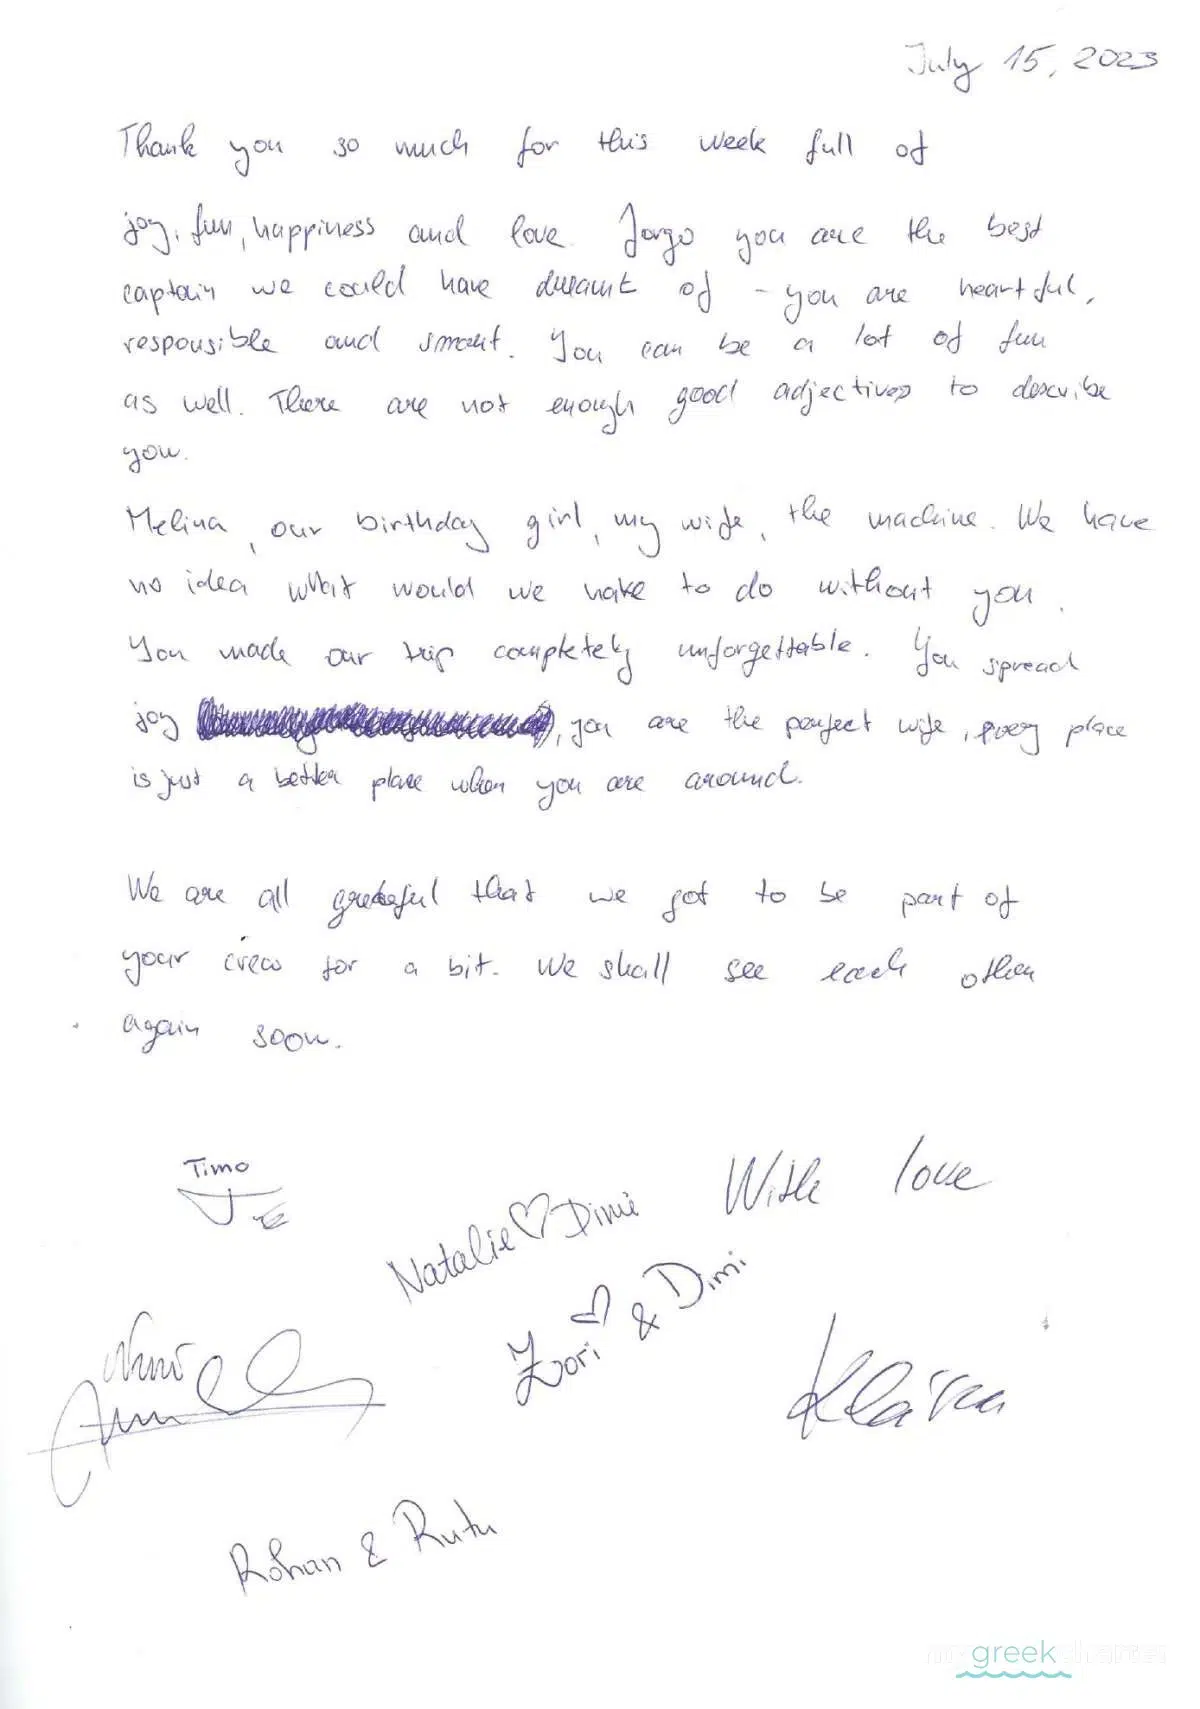 July 15, 2023
Thank you so much for this week full of
joy, fun, happiness and love. Jorgo you are the best
captain we could have dreamt of - you are heartful,
responsible and smart. You can be a lot of fun
as well. There are not enough good adjectives to describe
you.
Melina, our birthday girl, my wife, the machine. We have
no idea what would we have to do without you.
You made our trip completely unforgettable. You spread
joy, you are the perfect wife, every place
is just a better place when you are around.
We are all grateful that we got to be part of
your crew for a bit. We shall see each other
again soon.
With love
Timo
Natalie ♡ Dimi
Zori & Dimi
Klára
Rohan & Rutu
mygreekcharter